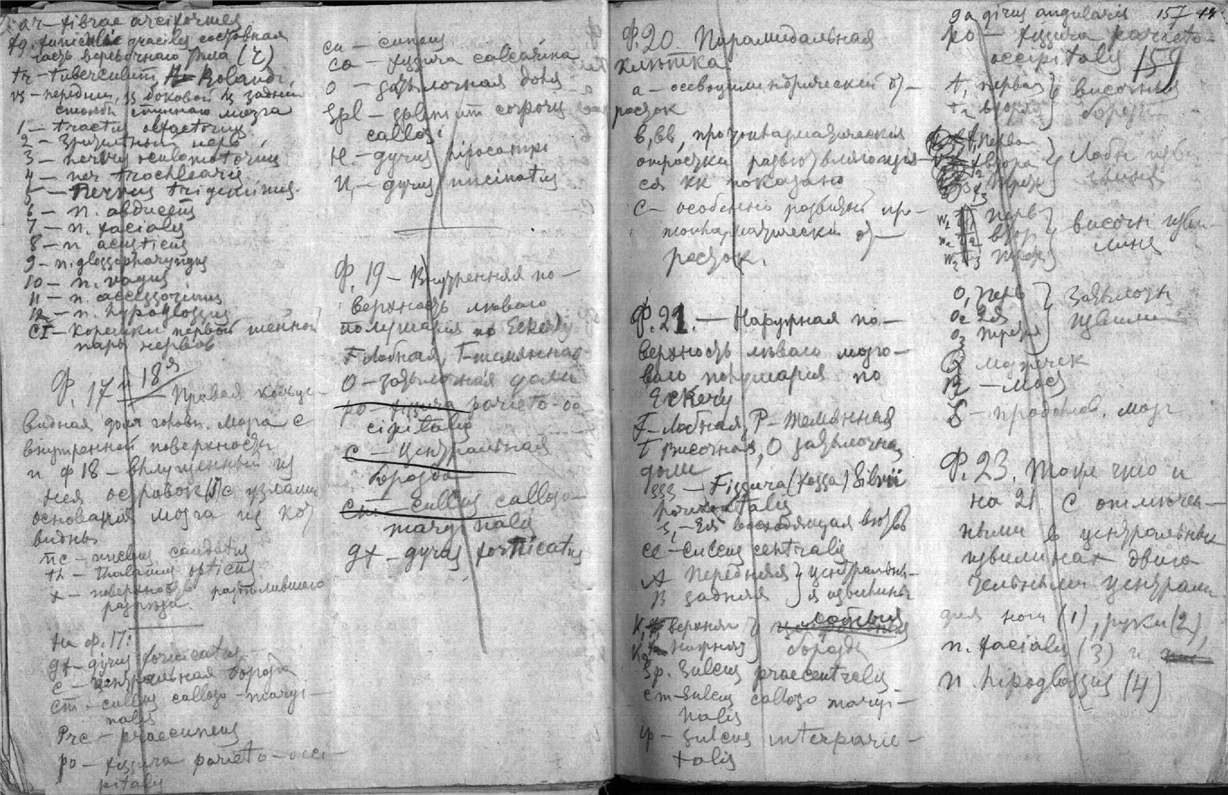 ar – fibrae arciformes
fg. funiculus gracilis составная
часть верёвочного тела (2)
tr – tuberculum Rolandi,
vs – передний, из боковой из задний
столб спинного мозга
1 – tractus olfactorius
2 – Зрительный нерв
3 – nervus oculomotorius
4 – ner trochlearis
5 – Nervus trigeminus
6 – n. abducens
7 – n. facialis
8 – n acusticus
9 – n. glossopharyngus
10 – n. vagus
11 – n. accessorius
12 – n. hypoglossus
CI – корешки первой шейной
пары нервов
Ф. 17 – 18я
Правая
видная доля головн. мозга с
внутренней поверхности
и Ф 18 – вылущенный из
нея островок с узлами
основания мозга из ко
видны
nc – nucleus caudatus
th – thalamus opticus
x – поверхность
разреза.
На ф. 17:
gf – girus fornicatus
c – центральная борозда
cm – sulcus calloso-margi-
nalis
Prc – praecuneus
po – fissura parieto-occi-
pitalis
cu – cuneus
ca – fissura calcarina
o – затылочная доля
spl – splenium corporis
callosi
H – gyrus hipocampi
U – gyrus uncinatus
Ф. 19 – Внутренняя по-
верхность леваго
полушария по Eckery
F лобная, T – темянная
O – затылочная доли
po – fissura parieto-oc
cipitalis
c – центральная
борозда
cm – sulcus calloso-
marginalis
gf – gyrus fornicatus
Ф. 20 – Пирамидальная
клетка
а – осевоцилиндрический от-
росток
в, вв, протоплазматические
отростки развѣтвляющие
ся как показано
с – особенно развитый про-
топлазматический от-
росток.
Ф. 21. – Наружная по-
верхность леваго мозго-
ваго полушария по
Eckery
F – лобная, P – темянная
T височная, O затылочная
доли
sss – Fissura (fossa) Silvii
horizontalis
s, – Ея восходящая ветвь
cc – sulcus centralis
A передняя } центральны-
B задняя } я извилины
К, верхняя } лобныя
К2 нижняя } борозды
sp. sulcus praecentralis
cm – sulcus calloso margi-
nalis
ip – sulcus interparie-
talis
ga girus angularis 157 14
po – fissura parieto-
occipitalis 159
t, первая } височныя
t2 вторая } борозды
перва
втора } Лобн изви
трет } лины
W1 перв } височн изви
W2 втор } лины
W3 трет
O, перв } Затылочн
O2 2ая } извилины
O3 третя
мозжечек
– мост
δ – продолгов. мозг
Ф. 23. Тоже что и
на 21 с отмечен-
ными в центральных
извилинах двига
тельными центрами
для ноги (1), руки (2),
n. facialis (3) и
n. hipoglossus (4)